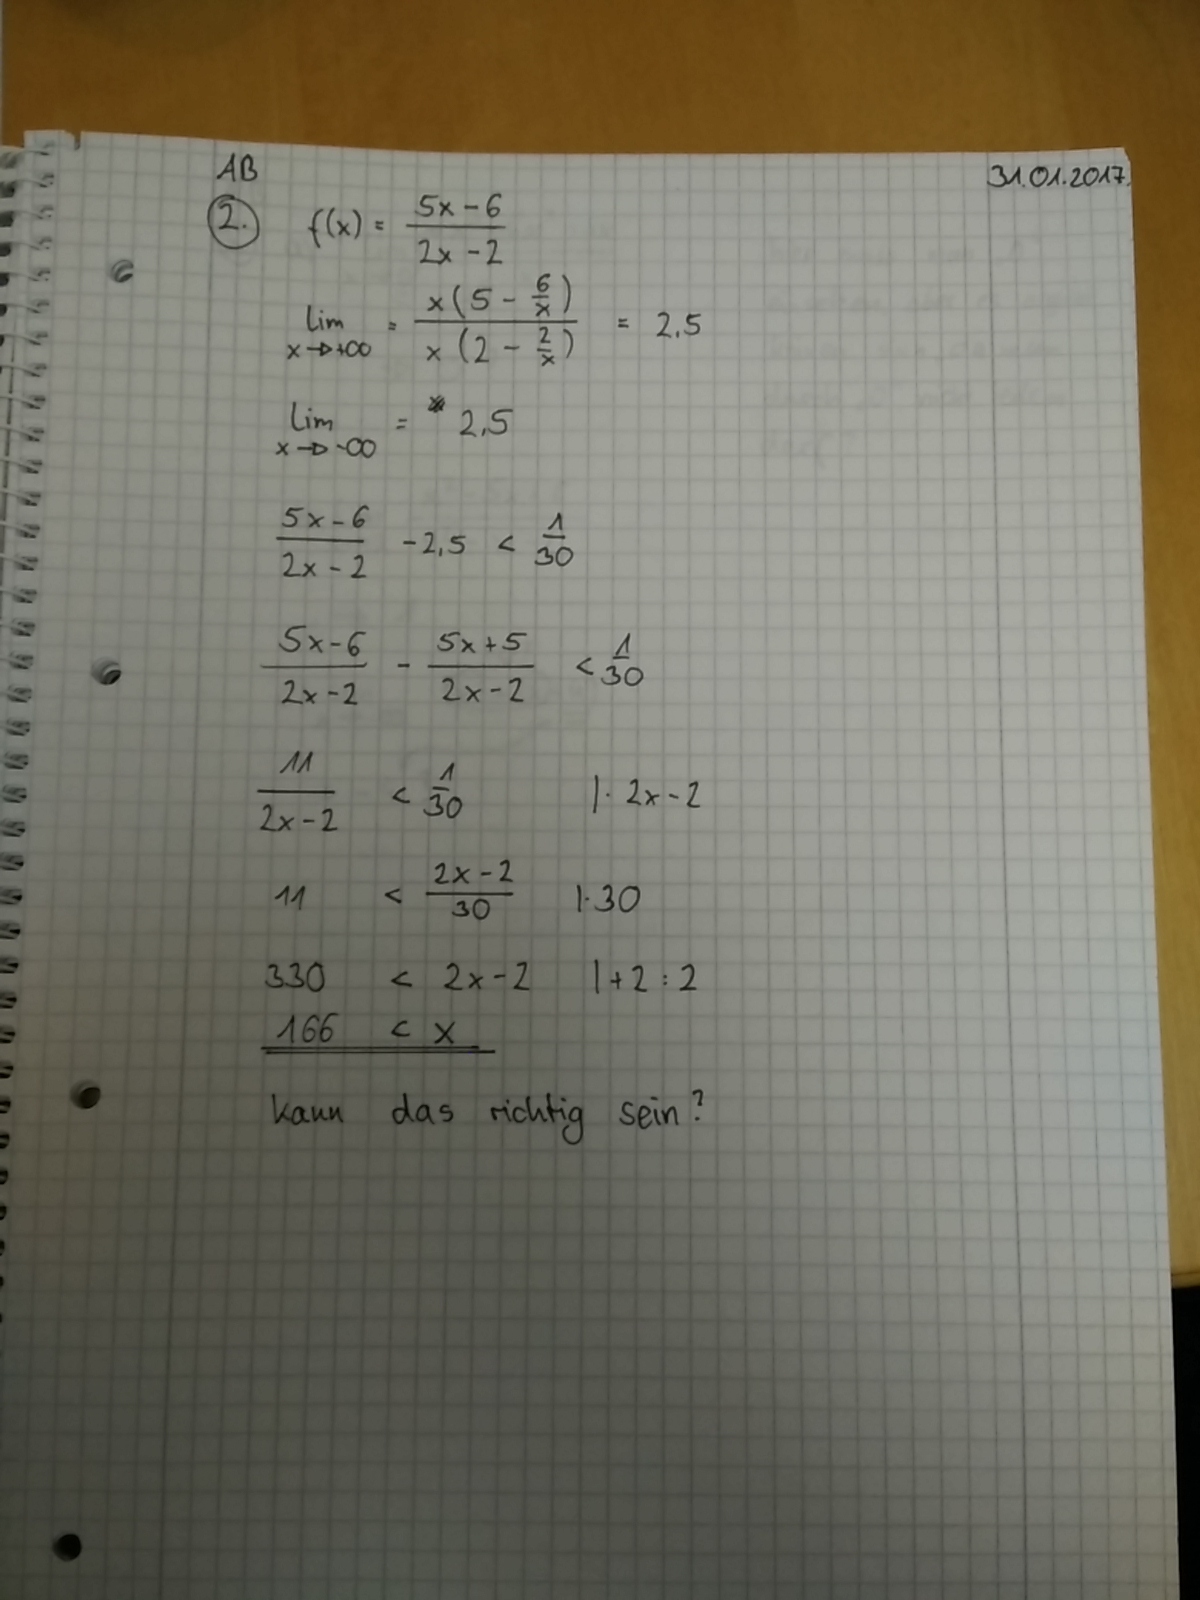 AB 31.01.2017
2. f(x) = (5x-6)/(2x-2)
lim x→+∞ = x(5 - 6/x) / x(2 - 2/x) = 2,5
lim x→-∞ = 2,5
(5x-6)/(2x-2) -2,5 < 1/30
(5x-6)/(2x-2) - (5x+5)/(2x-2) < 1/30
11/(2x-2) < 1/30 |· 2x-2
11 < (2x-2)/30 |·30
330 < 2x-2 |+2 :2
166 < x
kann das richtig sein?